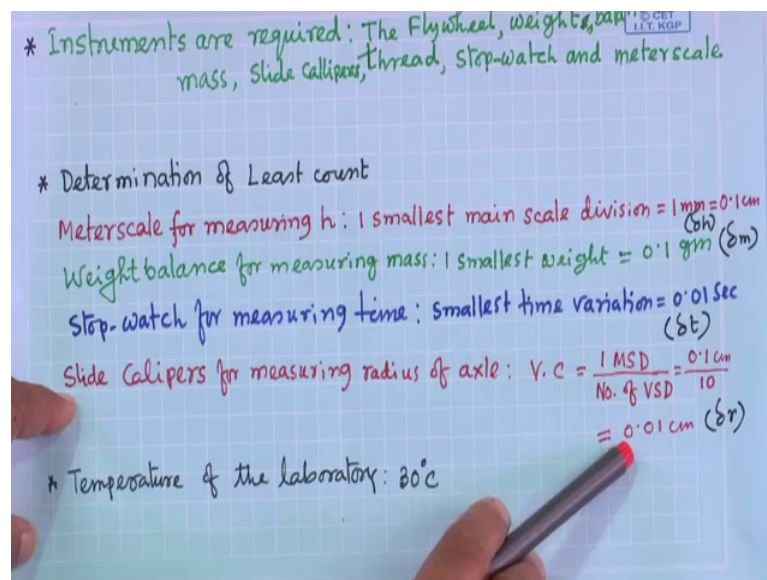 * Instruments are required: The Flywheel, weights,
© CET
I.I.T. KGP
mass, Slide Callipers, thread, Stop-watch and meterscale
* Determination of Least count
Meterscale for measuring h: 1 smallest main scale division = 1 mm = 0.1 cm
(δh)
Weight balance for measuring mass: 1 smallest weight = 0.1 gm (δm)
Stop-watch for measuring time: smallest time variation = 0.01 Sec
(δt)
Slide Calipers for measuring radius of axle: V.C = 1 MSD / No. of VSD = 0.1 cm / 10
= 0.01 cm (δr)
* Temperature of the laboratory: 30°C